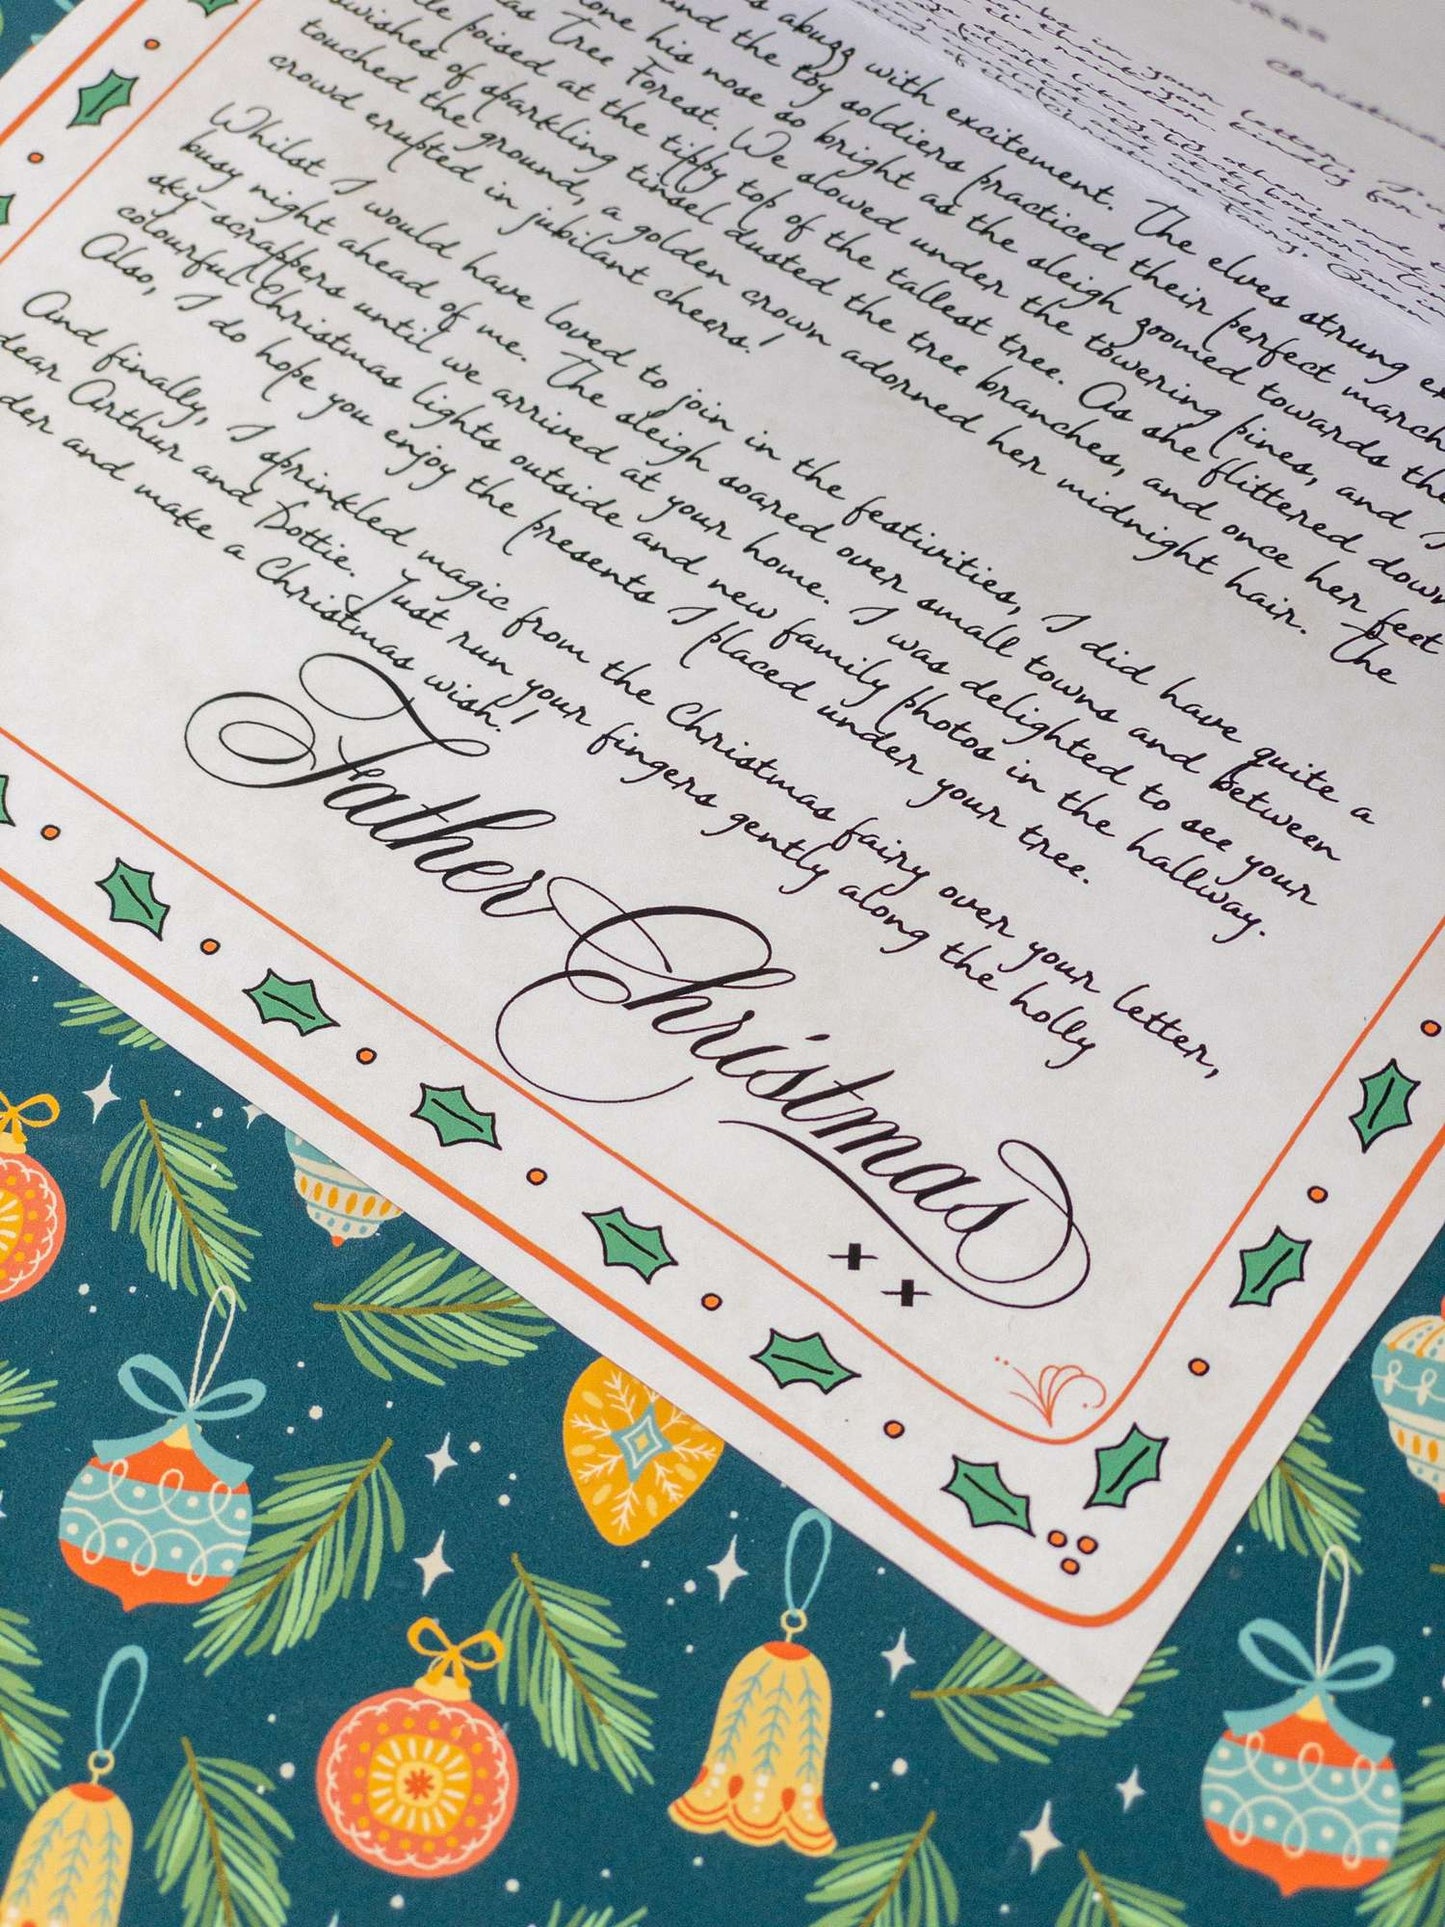 abuzz with excitement. The elves strung
and the toy soldiers practiced their perfect march
his nose so bright as the sleigh zoomed towards the
Tree Forest. We slowed under the towering pines, and I
poised at the tippy top of the tallest tree. As she flittered down
swishes of sparkling tinsel dusted the tree branches, and once her feet
touched the ground, a golden crown adorned her midnight hair. The
crowd erupted in jubilant cheers!
Whilst I would have loved to join in the festivities, I did have quite a
busy night ahead of me. The sleigh soared over small towns and between
sky-scrappers until we arrived at your home. I was delighted to see your
colourful Christmas lights outside and new family photos in the hallway.
Also, I do hope you enjoy the presents I placed under your tree.
And finally, I sprinkled magic from the Christmas fairy over your letter,
dear Arthur and Dottie. Just run your fingers gently along the holly
der and make a Christmas wish!
Father Christmas
x x